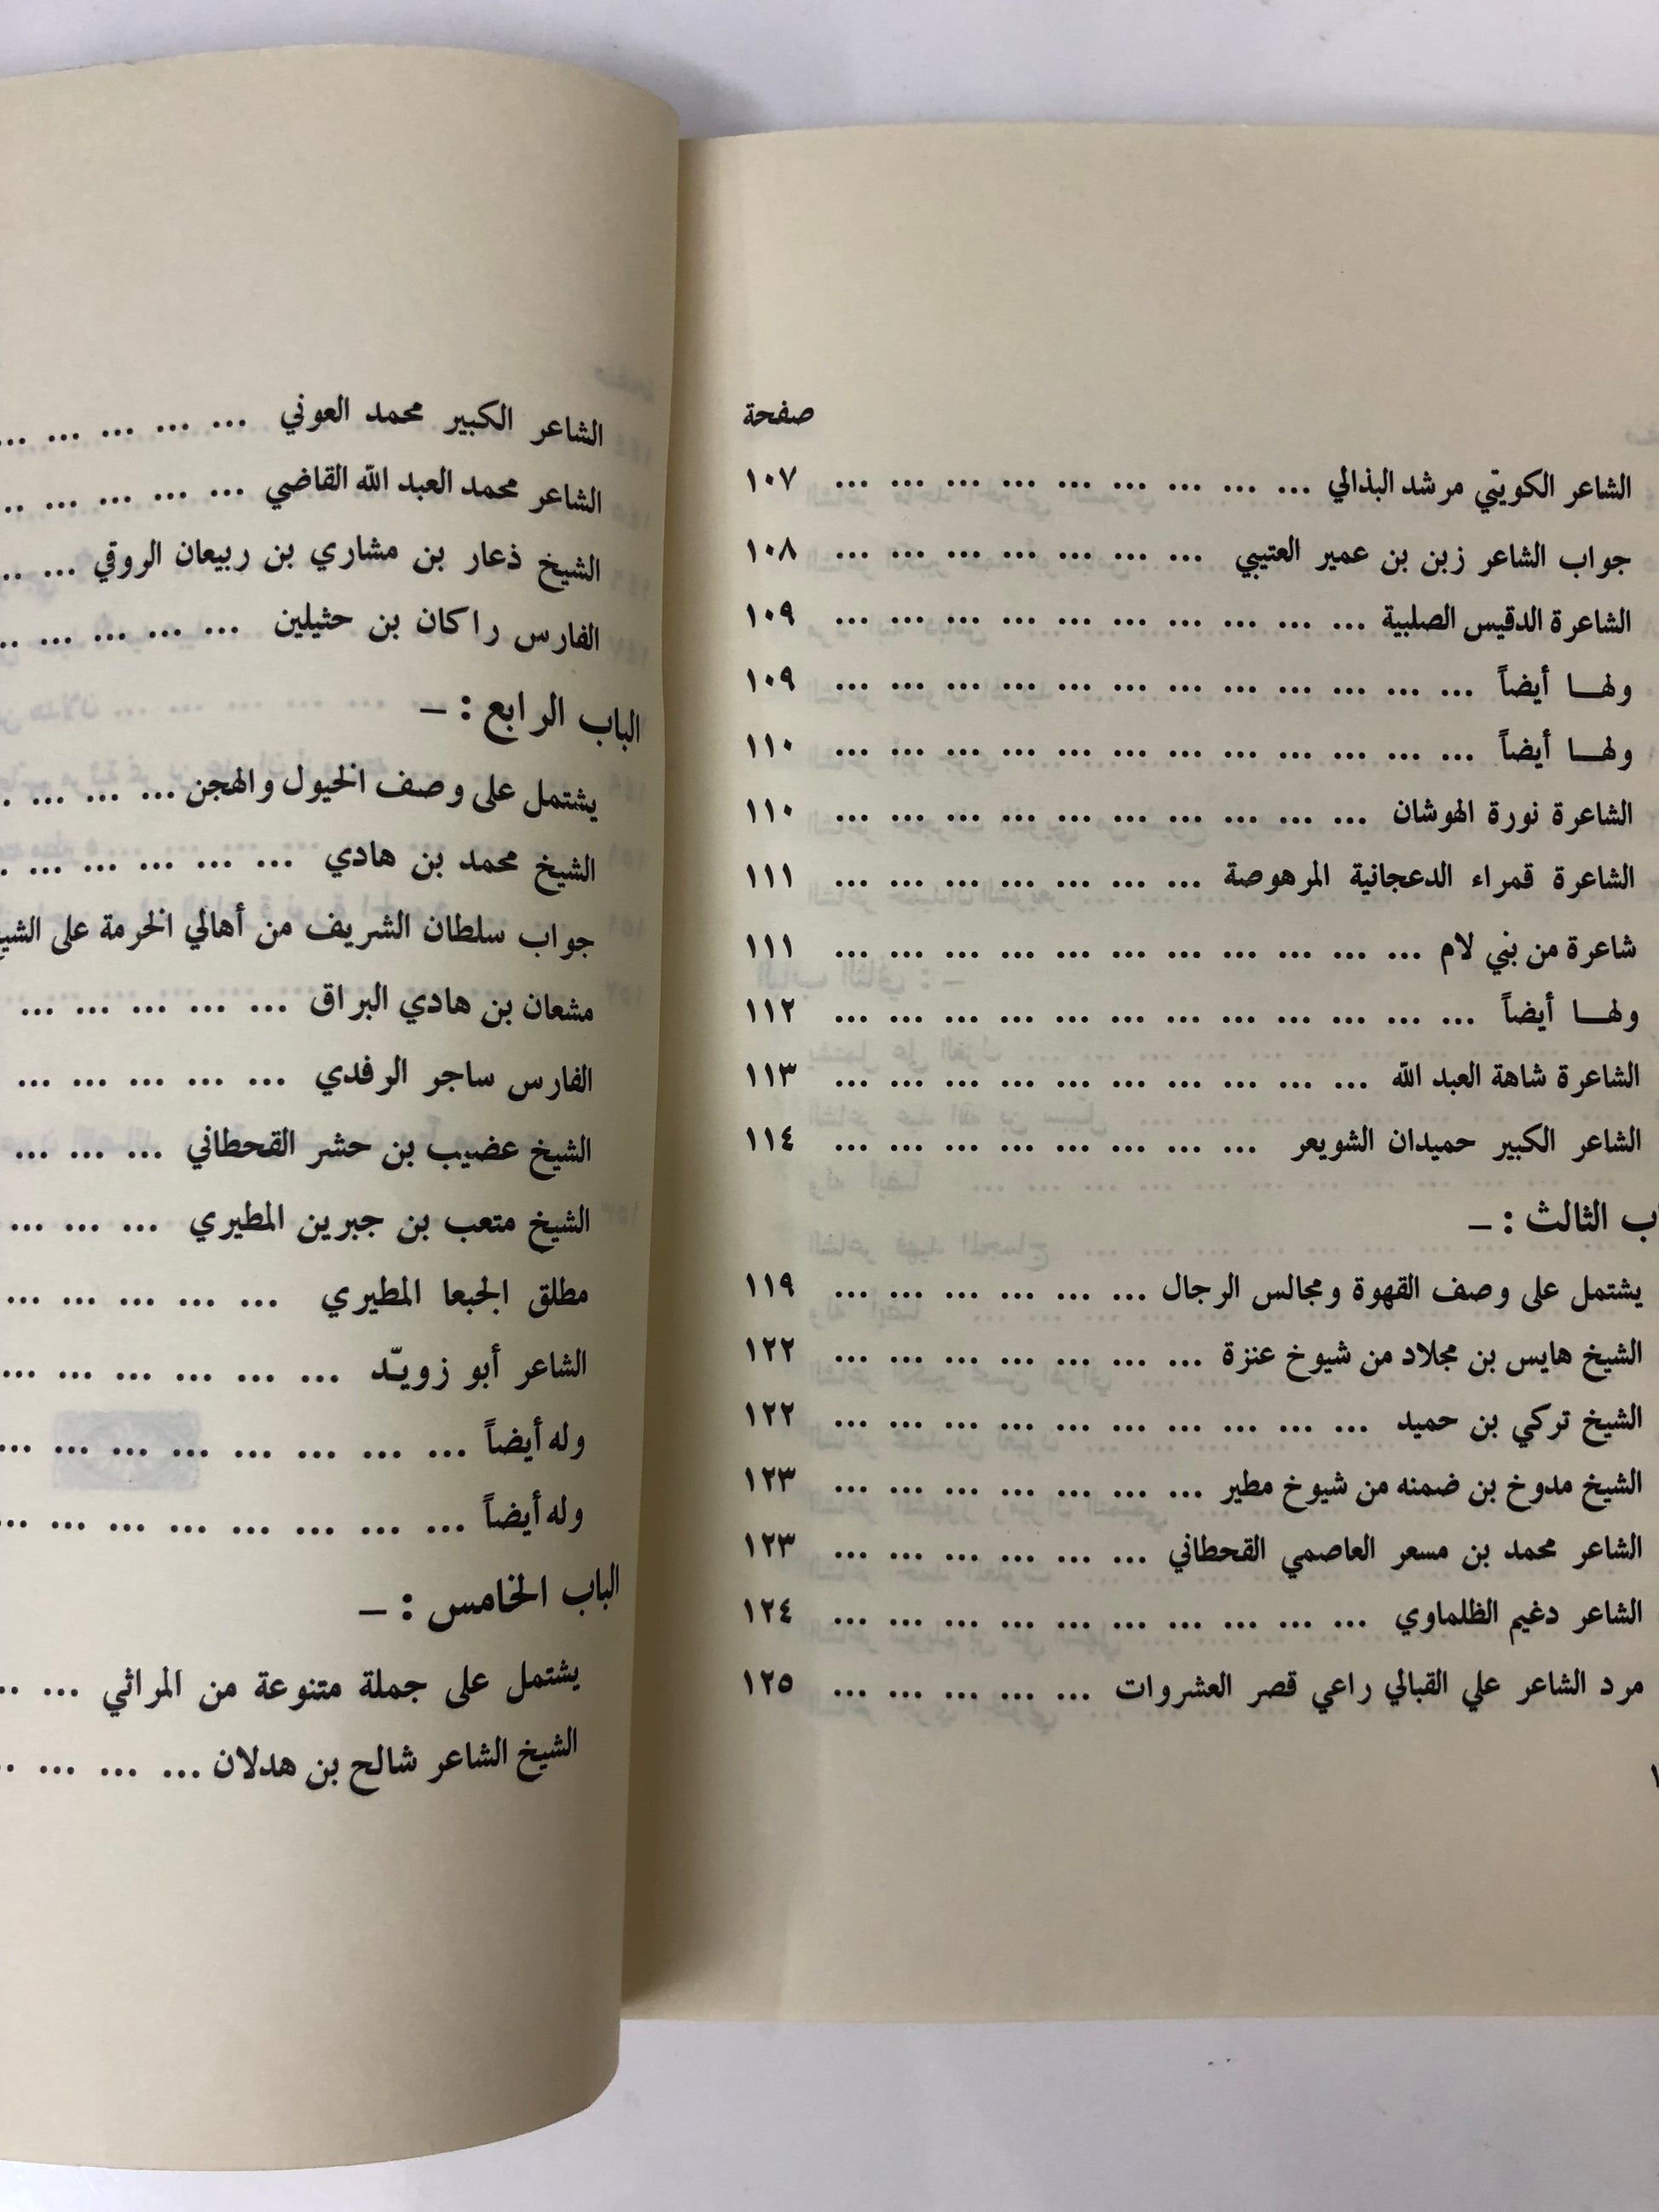 صفحة
الشاعر الكويتي مرشد البذالي ... ... ... ... ... ... ... ... ... ١٠٧
جواب الشاعر زبن بن عمير العتيبي ... ... ... ... ... ... ... ١٠٨
الشاعرة الدقيس الصلبية ... ... ... ... ... ... ... ... ... ... ١٠٩
ولهــا أيضاً ... ... ... ... ... ... ... ... ... ... ... ... ١٠٩
ولهــا أيضاً ... ... ... ... ... ... ... ... ... ... ... ... ١١٠
الشاعرة نورة الهوشان ... ... ... ... ... ... ... ... ... ... ١١٠
الشاعرة قمراء الدعجانية المرهوصة ... ... ... ... ... ... ... ١١١
شاعرة من بني لام ... ... ... ... ... ... ... ... ... ... ... ١١١
ولهــا أيضاً ... ... ... ... ... ... ... ... ... ... ... ... ١١٢
الشاعرة شاهة العبد الله ... ... ... ... ... ... ... ... ... ... ١١٣
الشاعر الكبير حميدان الشويعر ... ... ... ... ... ... ... ... ١١٤
الثالث : –
يشتمل على وصف القهوة ومجالس الرجال ... ... ... ... ... ... ١١٩
الشيخ هايس بن مجلاد من شيوخ عنزة ... ... ... ... ... ... ... ١٢٢
الشيخ تركي بن حميد ... ... ... ... ... ... ... ... ... ... ١٢٢
الشيخ مدوخ بن ضمنه من شيوخ مطير ... ... ... ... ... ... ... ١٢٣
الشاعر محمد بن مسعر العاصمي القحطاني ... ... ... ... ... ... ١٢٣
الشاعر دغيم الظلماوي ... ... ... ... ... ... ... ... ... ... ١٢٤
مرد الشاعر علي القبالي راعي قصر العشروات ... ... ... ... ... ١٢٥
الشاعر الكبير محمد العوني ... ... ... ... ...
الشاعر محمد العبد الله القاضي ... ... ... ... ...
الشيخ ذعار بن مشاري بن ربيعان الروقي ... ...
الفارس راكان بن حثيلين ... ... ... ... ...
الباب الرابع : –
يشتمل على وصف الخيول والهجن ... ... ... ...
الشيخ محمد بن هادي ... ... ... ... ... ...
جواب سلطان الشريف من أهالي الخرمة على
مشعان بن هادي البراق ... ... ... ... ...
الفارس ساجر الرفدي ... ... ... ... ...
الشيخ عضيب بن حشر القحطاني ... ... ...
الشيخ متعب بن جبرين المطيري ... ... ...
مطلق الجبعا المطيري ... ... ... ... ...
الشاعر أبو زويـّد ... ... ... ... ... ...
وله أيضاً ... ... ... ... ... ... ... ...
وله أيضاً ... ... ... ... ... ... ... ...
الباب الخامس : –
يشتمل على جملة متنوعة من المراثي ... ...
الشيخ الشاعر شالح بن هدلان ... ... ... ...